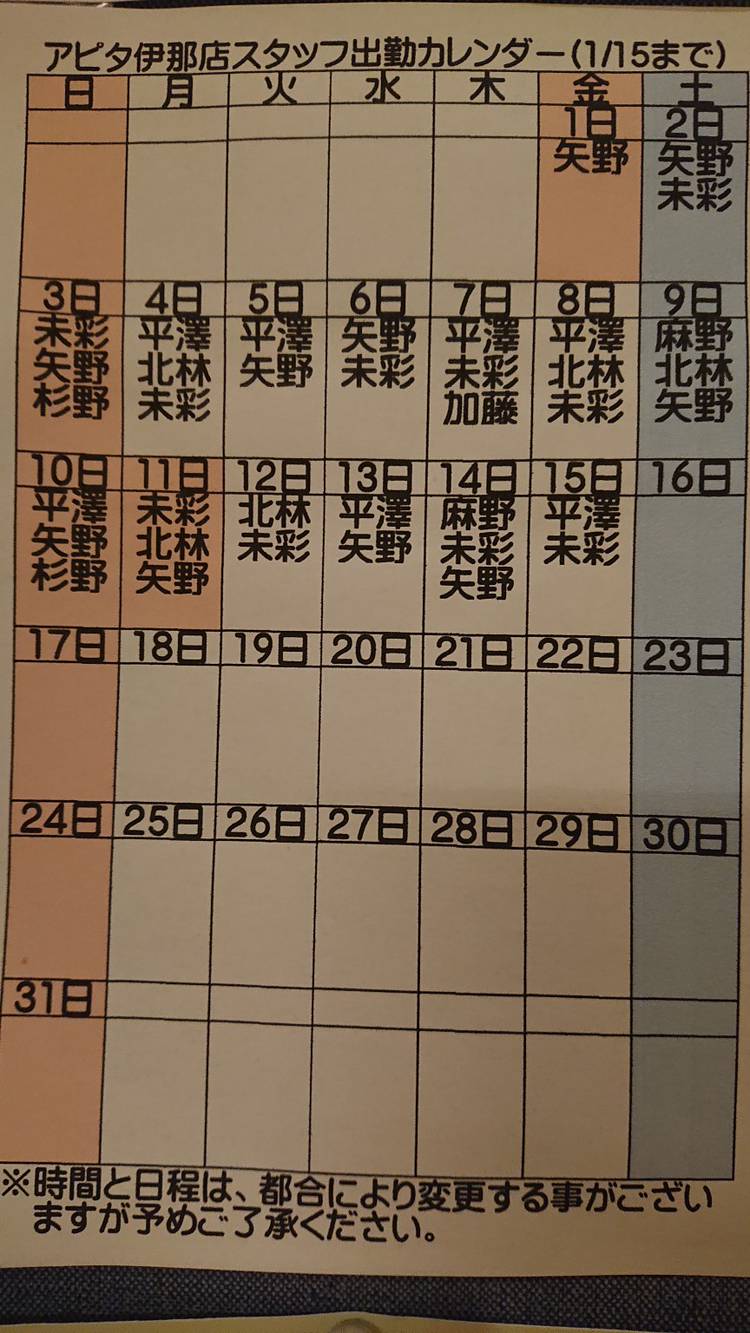 アピタ伊那店スタッフ出勤カレンダー(1/15まで)
日 月 火 水 木 金 土
1日 2日
矢野 矢野
未彩
3日 4日 5日 6日 7日 8日 9日
未彩 平澤 平澤 矢野 平澤 平澤 麻野
矢野 北林 矢野 未彩 未彩 北林 北林
杉野 未彩 加藤 未彩 矢野
10日 11日 12日 13日 14日 15日 16日
平澤 未彩 北林 平澤 麻野 平澤
矢野 北林 未彩 矢野 未彩 未彩
杉野 矢野 矢野
17日 18日 19日 20日 21日 22日 23日
24日 25日 26日 27日 28日 29日 30日
31日
※時間と日程は、都合により変更する事がござい
ますが予めご了承ください。